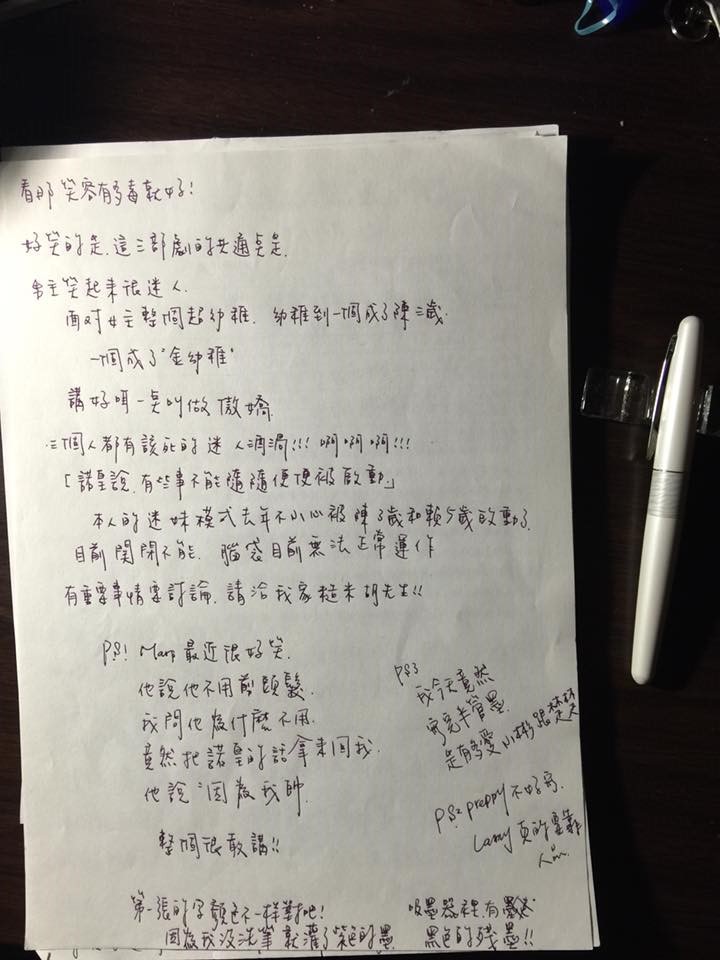 看那笑容有多毒就好!
好笑的是,這三部劇的共通點是.
男主笑起來很迷人.
面對女主整個超幼稚. 幼稚到一個成了陳三歲.
一個成了"金幼稚"
講好聽一點叫做傲嬌.
三個人都有該死的迷人酒渦!!! 啊啊啊!!!
「諾皇說,有些事不能隨隨便便被啟動」
本人的迷妹模式去年不小心被陳3歲和賴5歲啟動了.
目前關閉不能. 腦袋目前無法正常運作
有重要事情要討論,請洽我家糙米胡先生!!
PS1 最近很好笑.
他說他不用剪頭髮.
我問他為什麼不用.
竟然把諾皇的話拿來回我.
他說"因為我帥.
整個很敢講!!
PS3
我今天竟然
寫完半管墨.
是有多愛小彬跟楚楚
PS2 preppy 不好寫.
Lamy 真的要靠
人品.
第一張的字顏色不一樣對吧!
因為我沒洗筆就灌了紫色的墨.
吸墨器裡有
黑色的殘墨!!